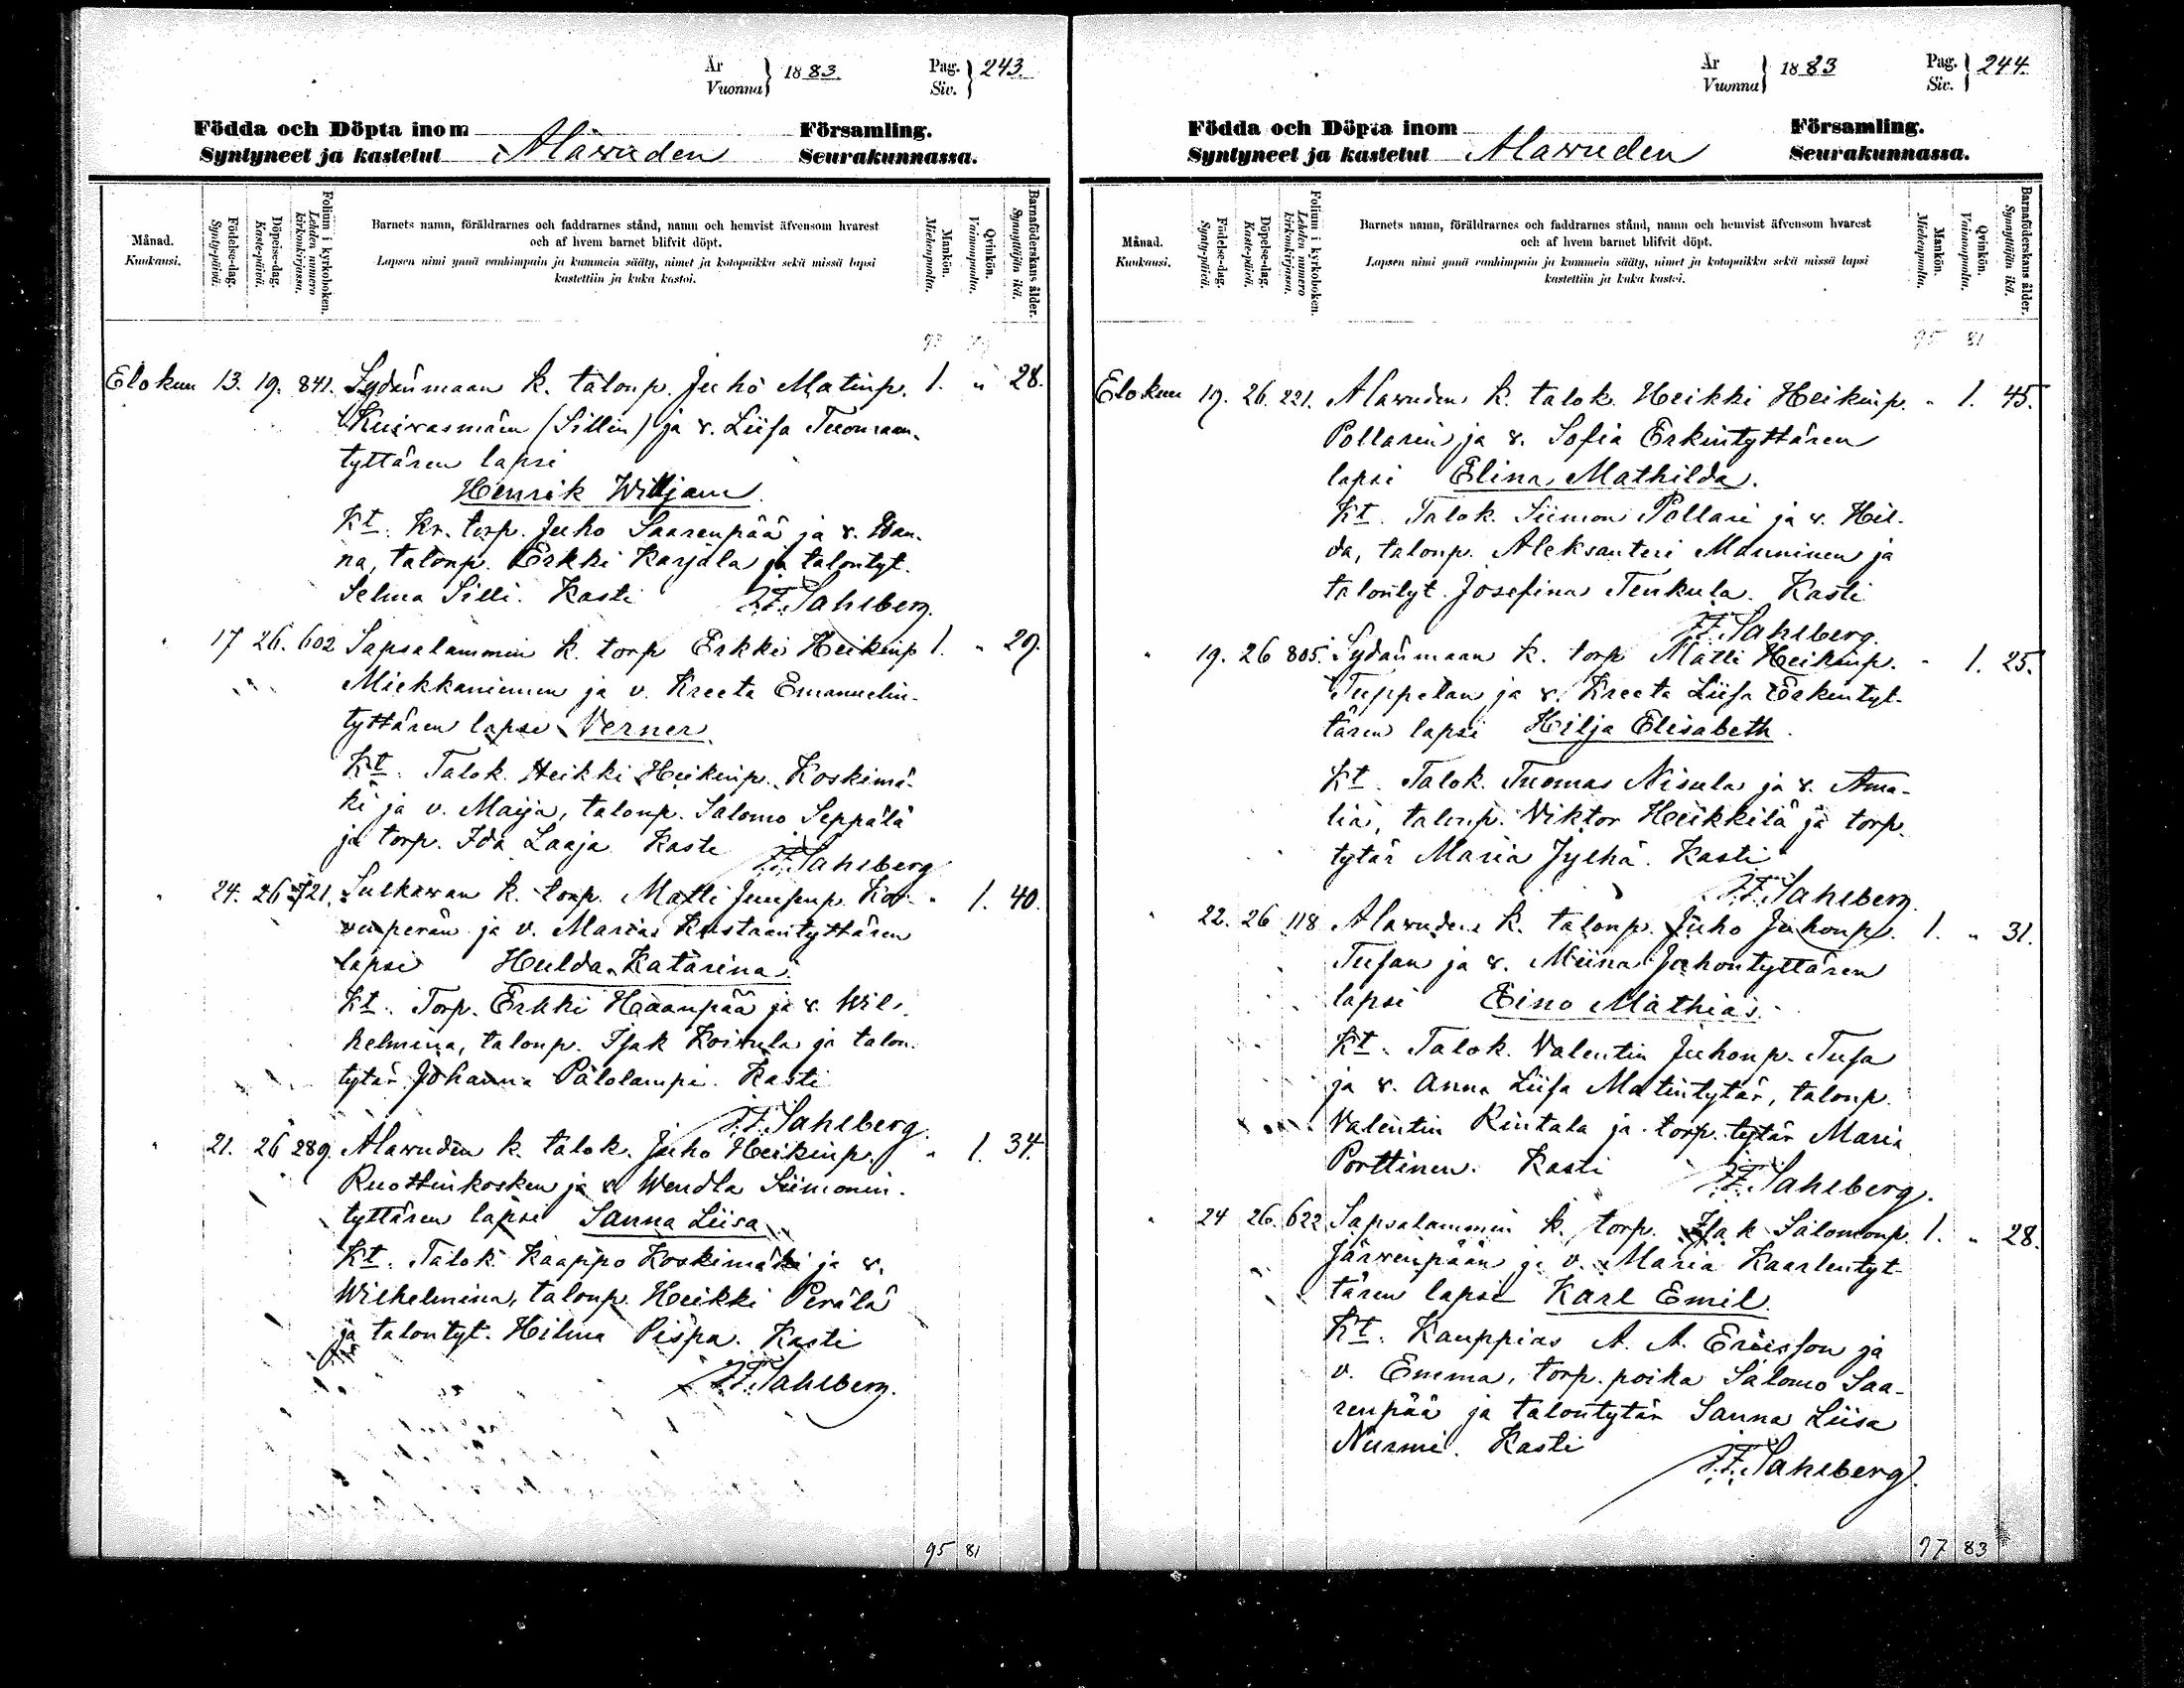 År
Vuonna } 1883.
Pag.
Siv. } 243.
Födda och Döpta inom Församling.
Syntyneet ja kastetut Alawuden Seurakunnassa.
Månad.
Kuukausi.
Födelse-dag.
Synty-päivä.
Döpelse-dag.
Kaste-päivä.
Folium i kyrkoboken.
Lehden numero
kirkonkirjassa.
Barnets namn, föräldrarnes och faddrarnes stånd, namn och hemvist äfvensom hvarest
och af hvem barnet blifvit döpt.
Lapsen nimi ynnä vanhimpain ja kummein sääty, nimet ja kotopaikka sekä missä lapsi
kastettiin ja kuka kastoi.
Mankön.
Miehenpuolta.
Qvinkön.
Vaimonpuolta.
Barnaföderskans ålder.
Synnyttäjän ikä.
Elokuu 13. 19. 841. Sydänmaan k. talonp. Juho Matinp. 1. " 28.
Kuivasmäen (Sillin) ja v. Liisa Tuomaan-
tyttären lapsi
Henrik William.
Kt. Kr. torp. Juho Saarenpää ja v. Han-
na, talonp. Erkki Karjala ja talontyt.
Selma Silli. Kasti J.F. Sahlberg.
" 17 26. 602 Sapsalammin k. torp Erkki Heikinp 1. " 29.
Miekkaniemen ja v. Kreeta Emanuelin-
tyttären lapsi Verner.
Kt. Talok. Heikki Heikinp. Koskimä-
ki ja v. Maija, talonp. Salomo Seppälä
ja torp. Ida Laaja Kasti J.F. Sahlberg
" 24. 26 721. Sulkawan k. torp. Matti Juusenp. Kor- " 1. 40.
venperän ja v. Marias Kustaantyttären
lapsi Hulda Katarina.
Kt. Torp. Erkki Haanpää ja v. Wil-
helmina, talonp. Isak Koivula ja talon-
tytär Johanna Pälolampi. Kasti
J.F. Sahlberg.
" 21. 26 289. Alawuden k. talok. Juho Heikinp. " 1. 34.
Ruottinkosken ja v. Wendla Siimonin-
tyttären lapsi Sanna Liisa
Kt. Talok. Kaappo Koskimäki ja v.
Wilhelmina, talonp. Heikki Perälä
ja talontyt. Hilma Pispa. Kasti
J.F. Sahlberg.
95 81
År
Vuonna } 1883
Pag.
Siv. } 244.
Födda och Döpta inom Församling.
Syntyneet ja kastetut Alawuden Seurakunnassa.
Månad.
Kuukausi.
Födelse-dag.
Synty-päivä.
Döpelse-dag.
Kaste-päivä.
Folium i kyrkoboken.
Lehden numero
kirkonkirjassa.
Barnets namn, föräldrarnes och faddrarnes stånd, namn och hemvist äfvensom hvarest
och af hvem barnet blifvit döpt.
Lapsen nimi ynnä vanhimpain ja kummein sääty, nimet ja kotopaikka sekä missä lapsi
kastettiin ja kuka kastoi.
Mankön.
Miehenpuolta.
Qvinkön.
Vaimonpuolta.
Barnaföderskans ålder.
Synnyttäjän ikä.
95 81
Elokuu 19. 26. 221. Alawuden k. talok. Heikki Heikinp. " 1. 45.
Pollarin ja v. Sofia Erkintyttären
lapsi Elina Mathilda.
Kt. Talok. Siimon Pollari ja v. Hil-
da, talonp. Aleksanteri Manninen ja
talontyt. Josefina Tenkula. Kasti
J.F. Sahlberg.
" 19. 26 805. Sydänmaan k. torp Matti Heikinp. " 1. 25.
Tuppelan ja v. Kreeta Liisa Erkintyt-
tären lapsi Hilja Elisabeth.
Kt. Talok. Tuomas Nisula ja v. Ama-
lia, talonp. Viktor Heikkilä ja torp.
tytär Maria Jylhä. Kasti
J.F. Sahlberg.
" 22. 26 118 Alawuden k. talonp. Juho Juhonp. 1. " 31.
Tusan ja v. Miina Juhontyttären
lapsi Eino Mathias.
Kt. Talok. Valentin Juhonp. Tusa
ja v. Anna Liisa Matintytär, talonp.
Valentin Rintala ja torp. tytär Maria
Porttinen. Kasti J.F. Sahlberg.
" 24 26. 622 Sapsalammin k. torp. Isak Salomonp. 1. " 28.
Järvenpään ja v. Maria Kaarlentyt-
tären lapsi Karl Emil.
Kt. Kauppias A. A. Ericsson ja
v. Emma, torp. poika Salomo Saa-
renpää ja talontytär Sanna Liisa
Nurmi. Kasti
J.F. Sahlberg.
97 83